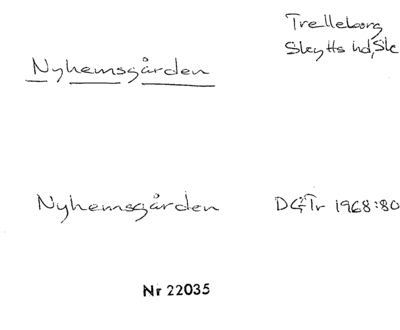 Trelleborg
Skytts hd, Sk
Nyhemsgården
Nyhemsgården DGTr 1968:80
Nr 22035